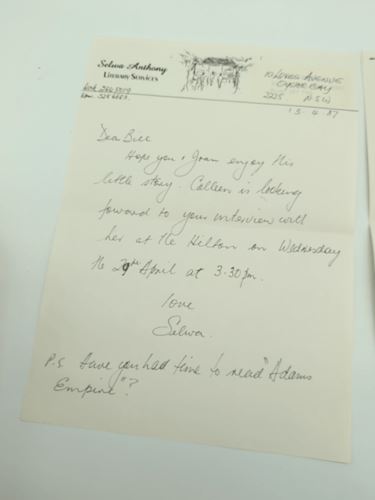 Selwa Anthony
LITERARY SERVICES
10 LORES AVENUE
OYSTER BAY
2225 NSW
13.4.87
Dear Bill
Hope you & Joan enjoy this
little story. Colleen is looking
forward to your interview with
her at the Hilton on Wednesday
the 29th April at 3.30pm.
love
Selwa.
P.S. Have you had time to read "Adams
Empire"?